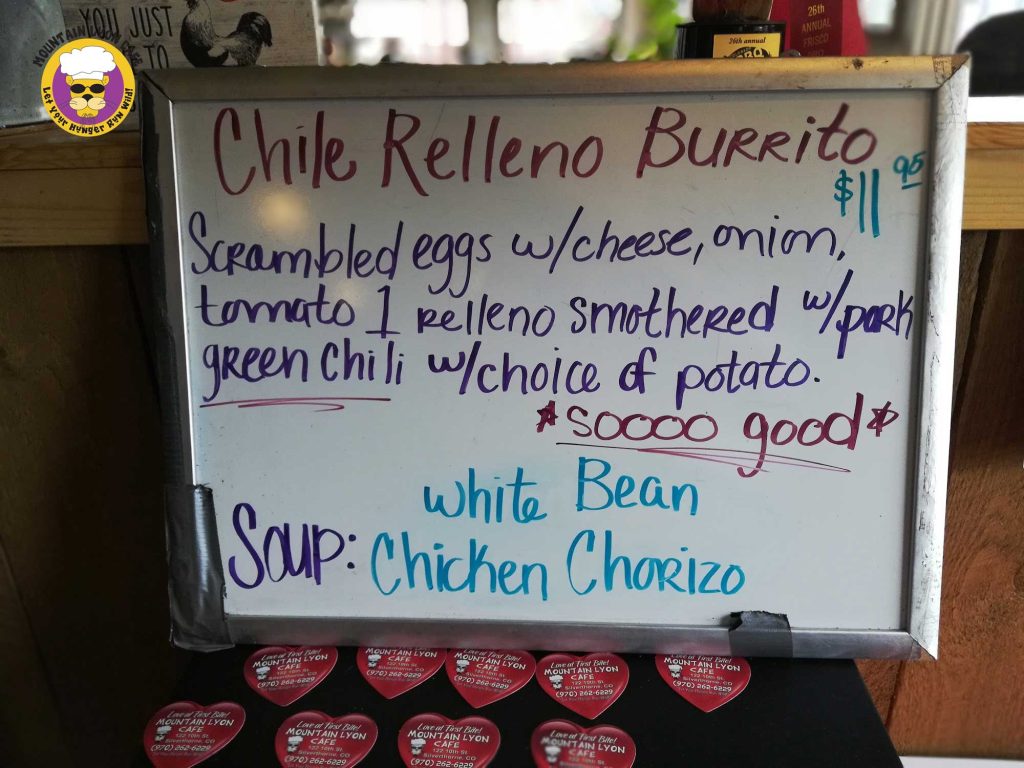 YOU JUST
TO
26th
ANNUAL
FRISCO
26th annual
MOUNTAIN LYON
Let Your Hunger Run Wild!
Chile Relleno Burrito
$11 95
Scrambled eggs w/cheese, onion,
tomato 1 relleno smothered w/pork
green chili w/choice of potato.
*soooo good*
White Bean
Soup: Chicken Chorizo
Love at First Bite!
MOUNTAIN LYON
CAFE
122 10th St.
Silverthorne, CO
(970) 262-6229
Love at First Bite!
MOUNTAIN LYON
CAFE
122 10th St.
Silverthorne, CO
(970) 262-6229
Love at First Bite!
MOUNTAIN LYON
CAFE
122 10th St.
Silverthorne, CO
(970) 262-6229
Love at First Bite!
MOUNTAIN LYON
CAFE
122 10th St.
Silverthorne, CO
(970) 262-6229
MOUNTAIN LYON
CAFE
122 10th St.
Silverthorne, CO
(970) 262-6229
Love at First Bite!
MOUNTAIN LYON
CAFE
122 10th St.
Silverthorne, CO
(970) 262-6229
Love at First Bite!
MOUNTAIN LYON
CAFE
122 10th St.
Silverthorne, CO
(970) 262-6229
Love at First Bite!
MOUNTAIN LYON
CAFE
122 10th St.
Silverthorne, CO
(970) 262-6229
Love at First Bite!
MOUNTAIN LYON
CAFE
122 10th St.
Silverthorne, CO
(970) 262-6229